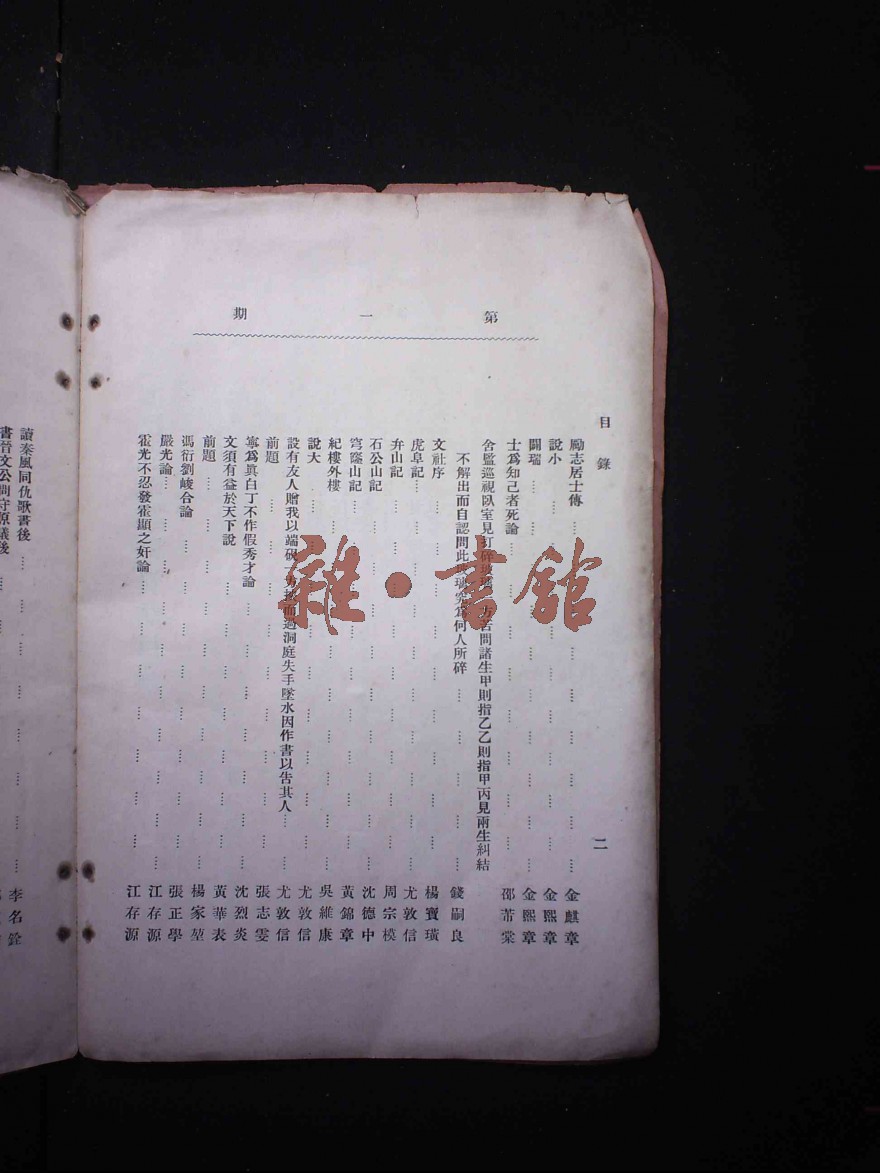 第一期
目錄
二
勵志居士傳 金麒章
說小 金熙章
鬭瑞 金熙章
士爲知己者死論 邵芾棠
舍監巡視臥室見 諸生甲則指乙乙則指甲丙見兩生糾結
不解出而自認問此 何人所碎 錢嗣良
文社序 楊寶璜
虎阜記 尤敦信
弁山記 周宗模
石公山記 沈德中
穹窿山記 黃錦章
紀樓外樓 吳維康
說大 尤敦信
設有友人贈我以端硯一方 而過洞庭失手墜水因作書以吿其人 尤敦信
前題 張志雯
寧爲眞白丁不作假秀才論 沈烈炎
文須有益於天下說 黃華表
前題 楊家堃
馮衍劉峻合論 張正學
嚴光論 江存源
霍光不忍發霍顯之奸論 江存源
讀秦風同仇歌書後 李名銓
書晉文公問守原議後
雜·書館